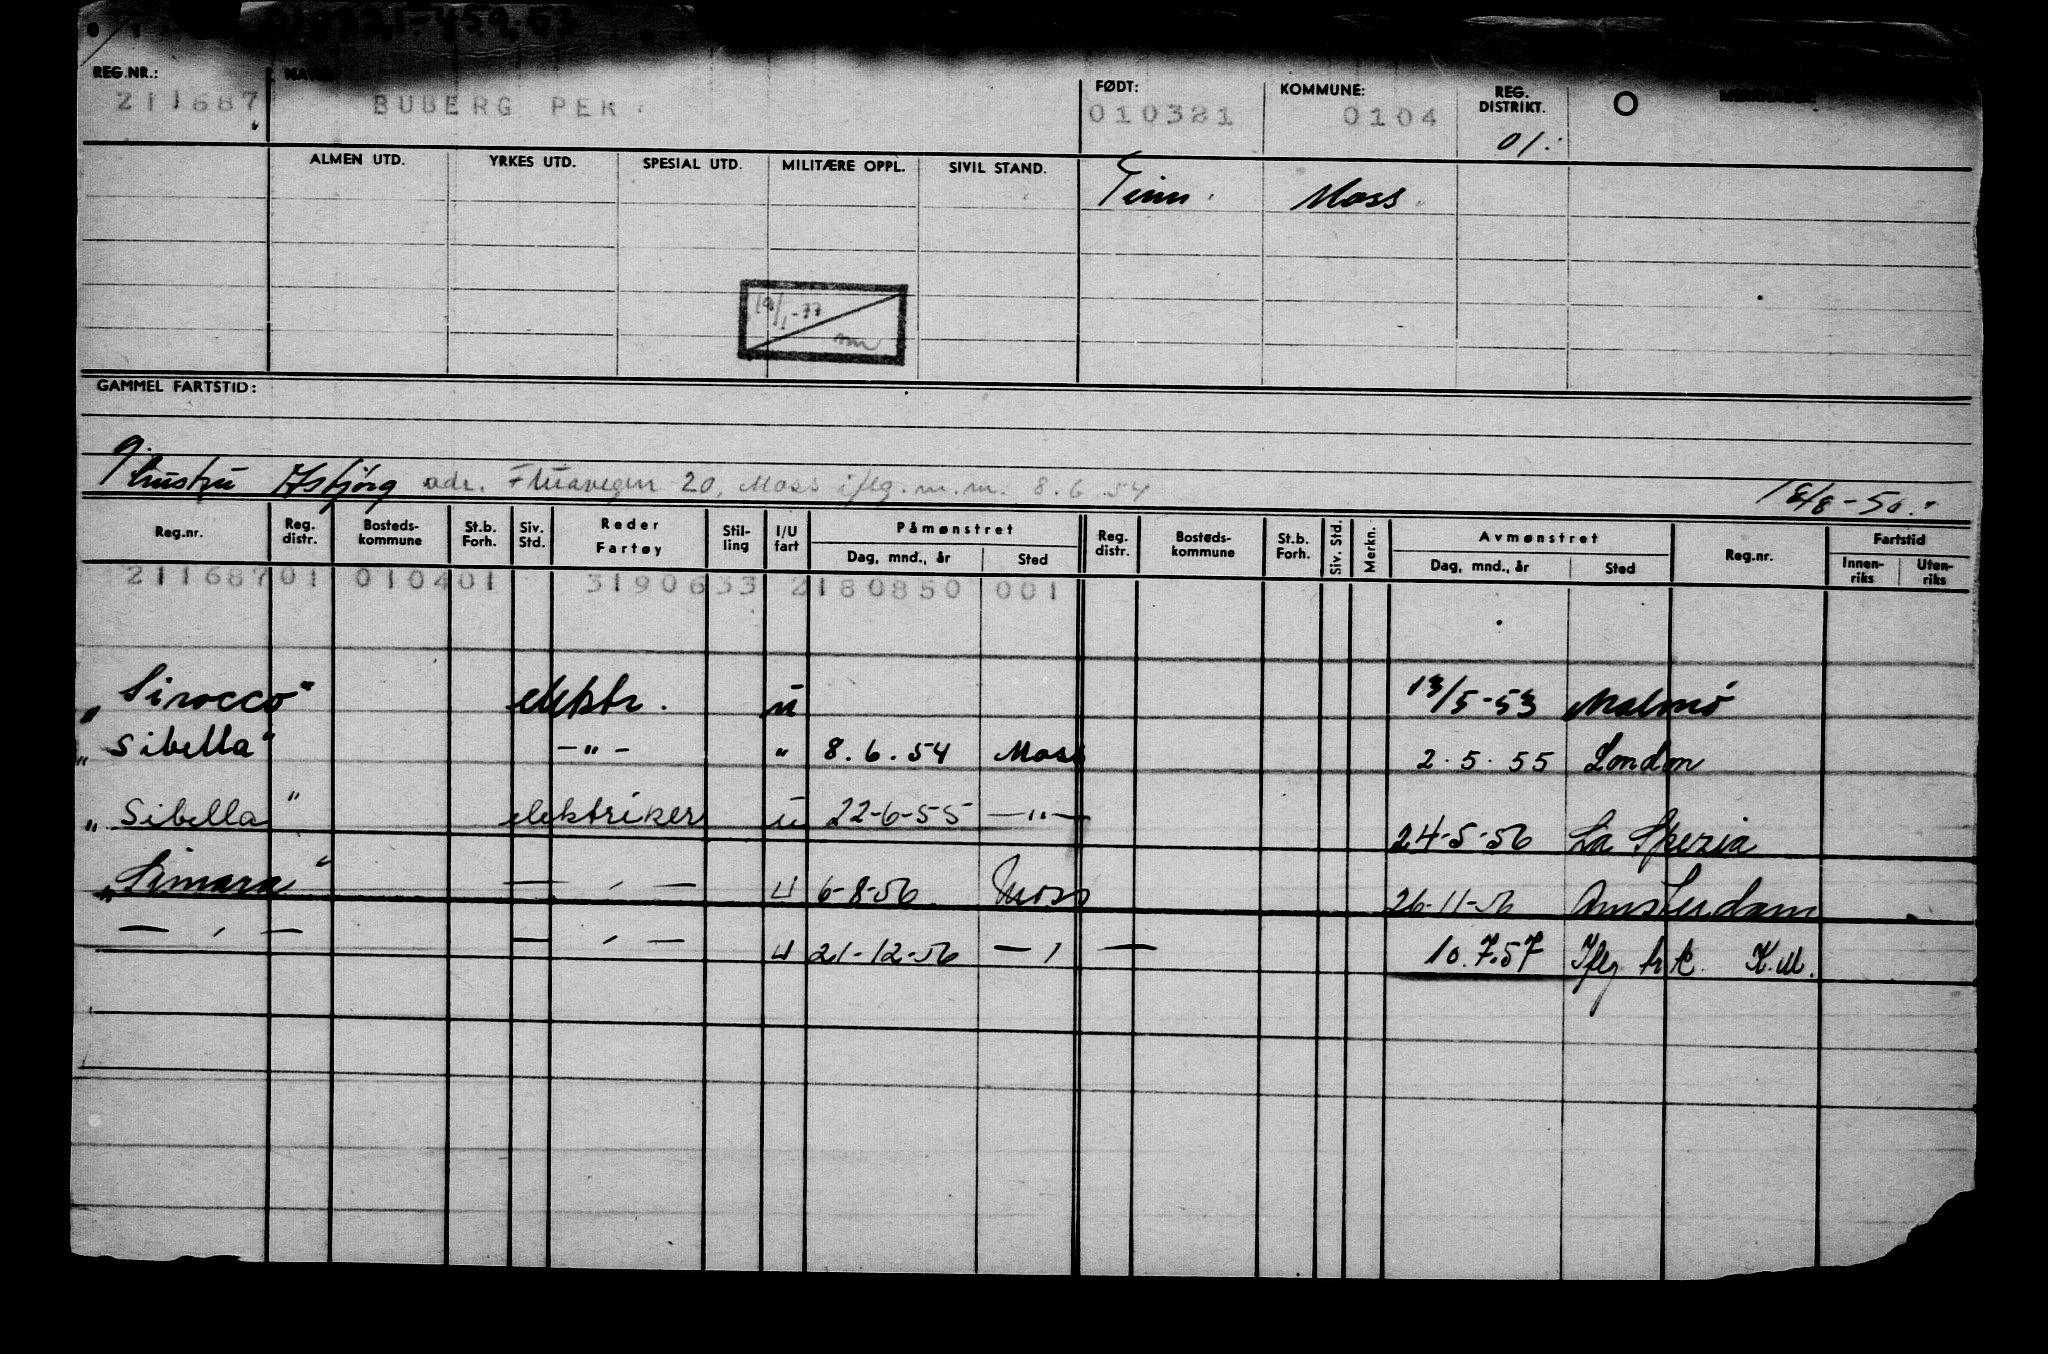 010321-459.53
REG.NR.: NAVN FØDT: KOMMUNE: REG. DISTRIKT. MERKNADER:
211687 BUBERG PER 010321 0104 01.
ALMEN UTD. YRKES UTD. SPESIAL UTD. MILITÆRE OPPL. SIVIL STAND.
Tinn. Moss
19/1-77
GAMMEL FARTSTID:
hustru Asbjørg adr. 20, Moss iflg. m.m. 8.6.54 18/8-50.
Reg.nr. Reg. distr. Bosteds- kommune St.b. Forh. Siv. Std. Reder Fartøy Stil- ling I/U fart Påmønstret Dag, mnd., år Sted Reg. distr. Bosteds- kommune St.b. Forh. Siv. Std. Merkn. Avmønstret Dag, mnd., år Sted Reg.nr. Fartstid Innen- riks Uten- riks
211687 01 0104 01 3190633 2 180850 001
„Sirocco" elektr. u 13/5-53 Malmö
„Sibella" -"- " 8.6.54 Moss 2.5.55 London
„Sibella" elektriker u 22-6-55 -"- 24-5-56 La Spezia
„Simara" — ' — u 6-8-56 Moss 26-11-56 Amsterdam
— ' — — ' — u 21-12-56 — ' — 10.7.57 Iflg h.k. K.M.